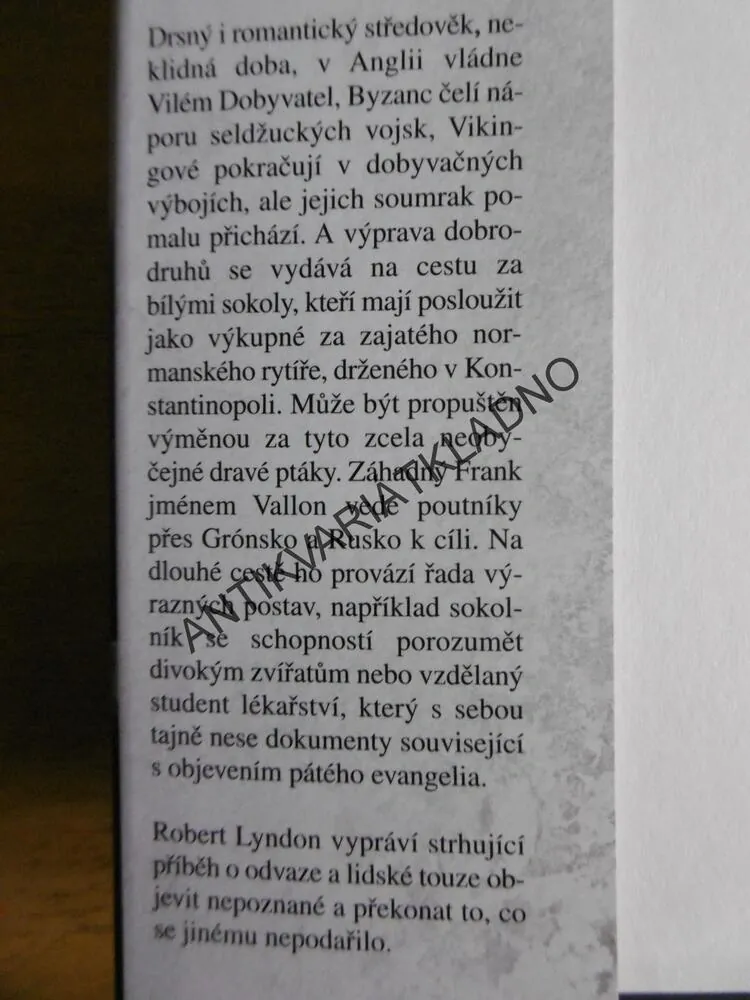 Drsný i romantický středověk, ne-
klidná doba, v Anglii vládne
Vilém Dobyvatel, Byzanc čelí ná-
poru seldžuckých vojsk, Vikin-
gové pokračují v dobyvačných
výbojích, ale jejich soumrak po-
malu přichází. A výprava dobro-
druhů se vydává na cestu za
bílými sokoly, kteří mají posloužit
jako výkupné za zajatého nor-
manského rytíře, drženého v Kon-
stantinopoli. Může být propuštěn
výměnou za tyto zcela neoby-
čejné dravé ptáky. Záhadný Frank
jménem Vallon vede poutníky
přes Grónsko a Rusko k cíli. Na
dlouhé cestě ho provází řada vý-
razných postav, například sokol-
ník se schopností porozumět
divokým zvířatům nebo vzdělaný
student lékařství, který s sebou
tajně nese dokumenty související
s objevením pátého evangelia.
Robert Lyndon vypráví strhující
příběh o odvaze a lidské touze ob-
jevit nepoznané a překonat to, co
se jinému nepodařilo.
ANTIKVARIATKLADNO